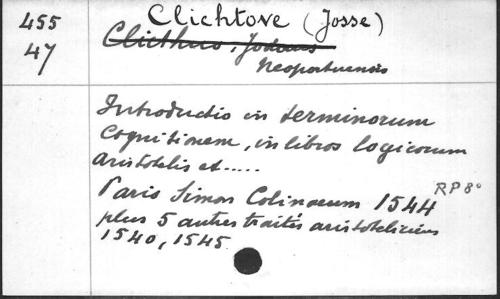 455
47
Clichtove (Josse)
Clicthus, Jodocus
Neoportuensis
Introductio in terminorum
cognitionem, in libros logicorum
Aristotelis et.....
Paris Simon Colinaeum 1544
RP 8°
plus 5 autres traités aristotéliciens
1540, 1545